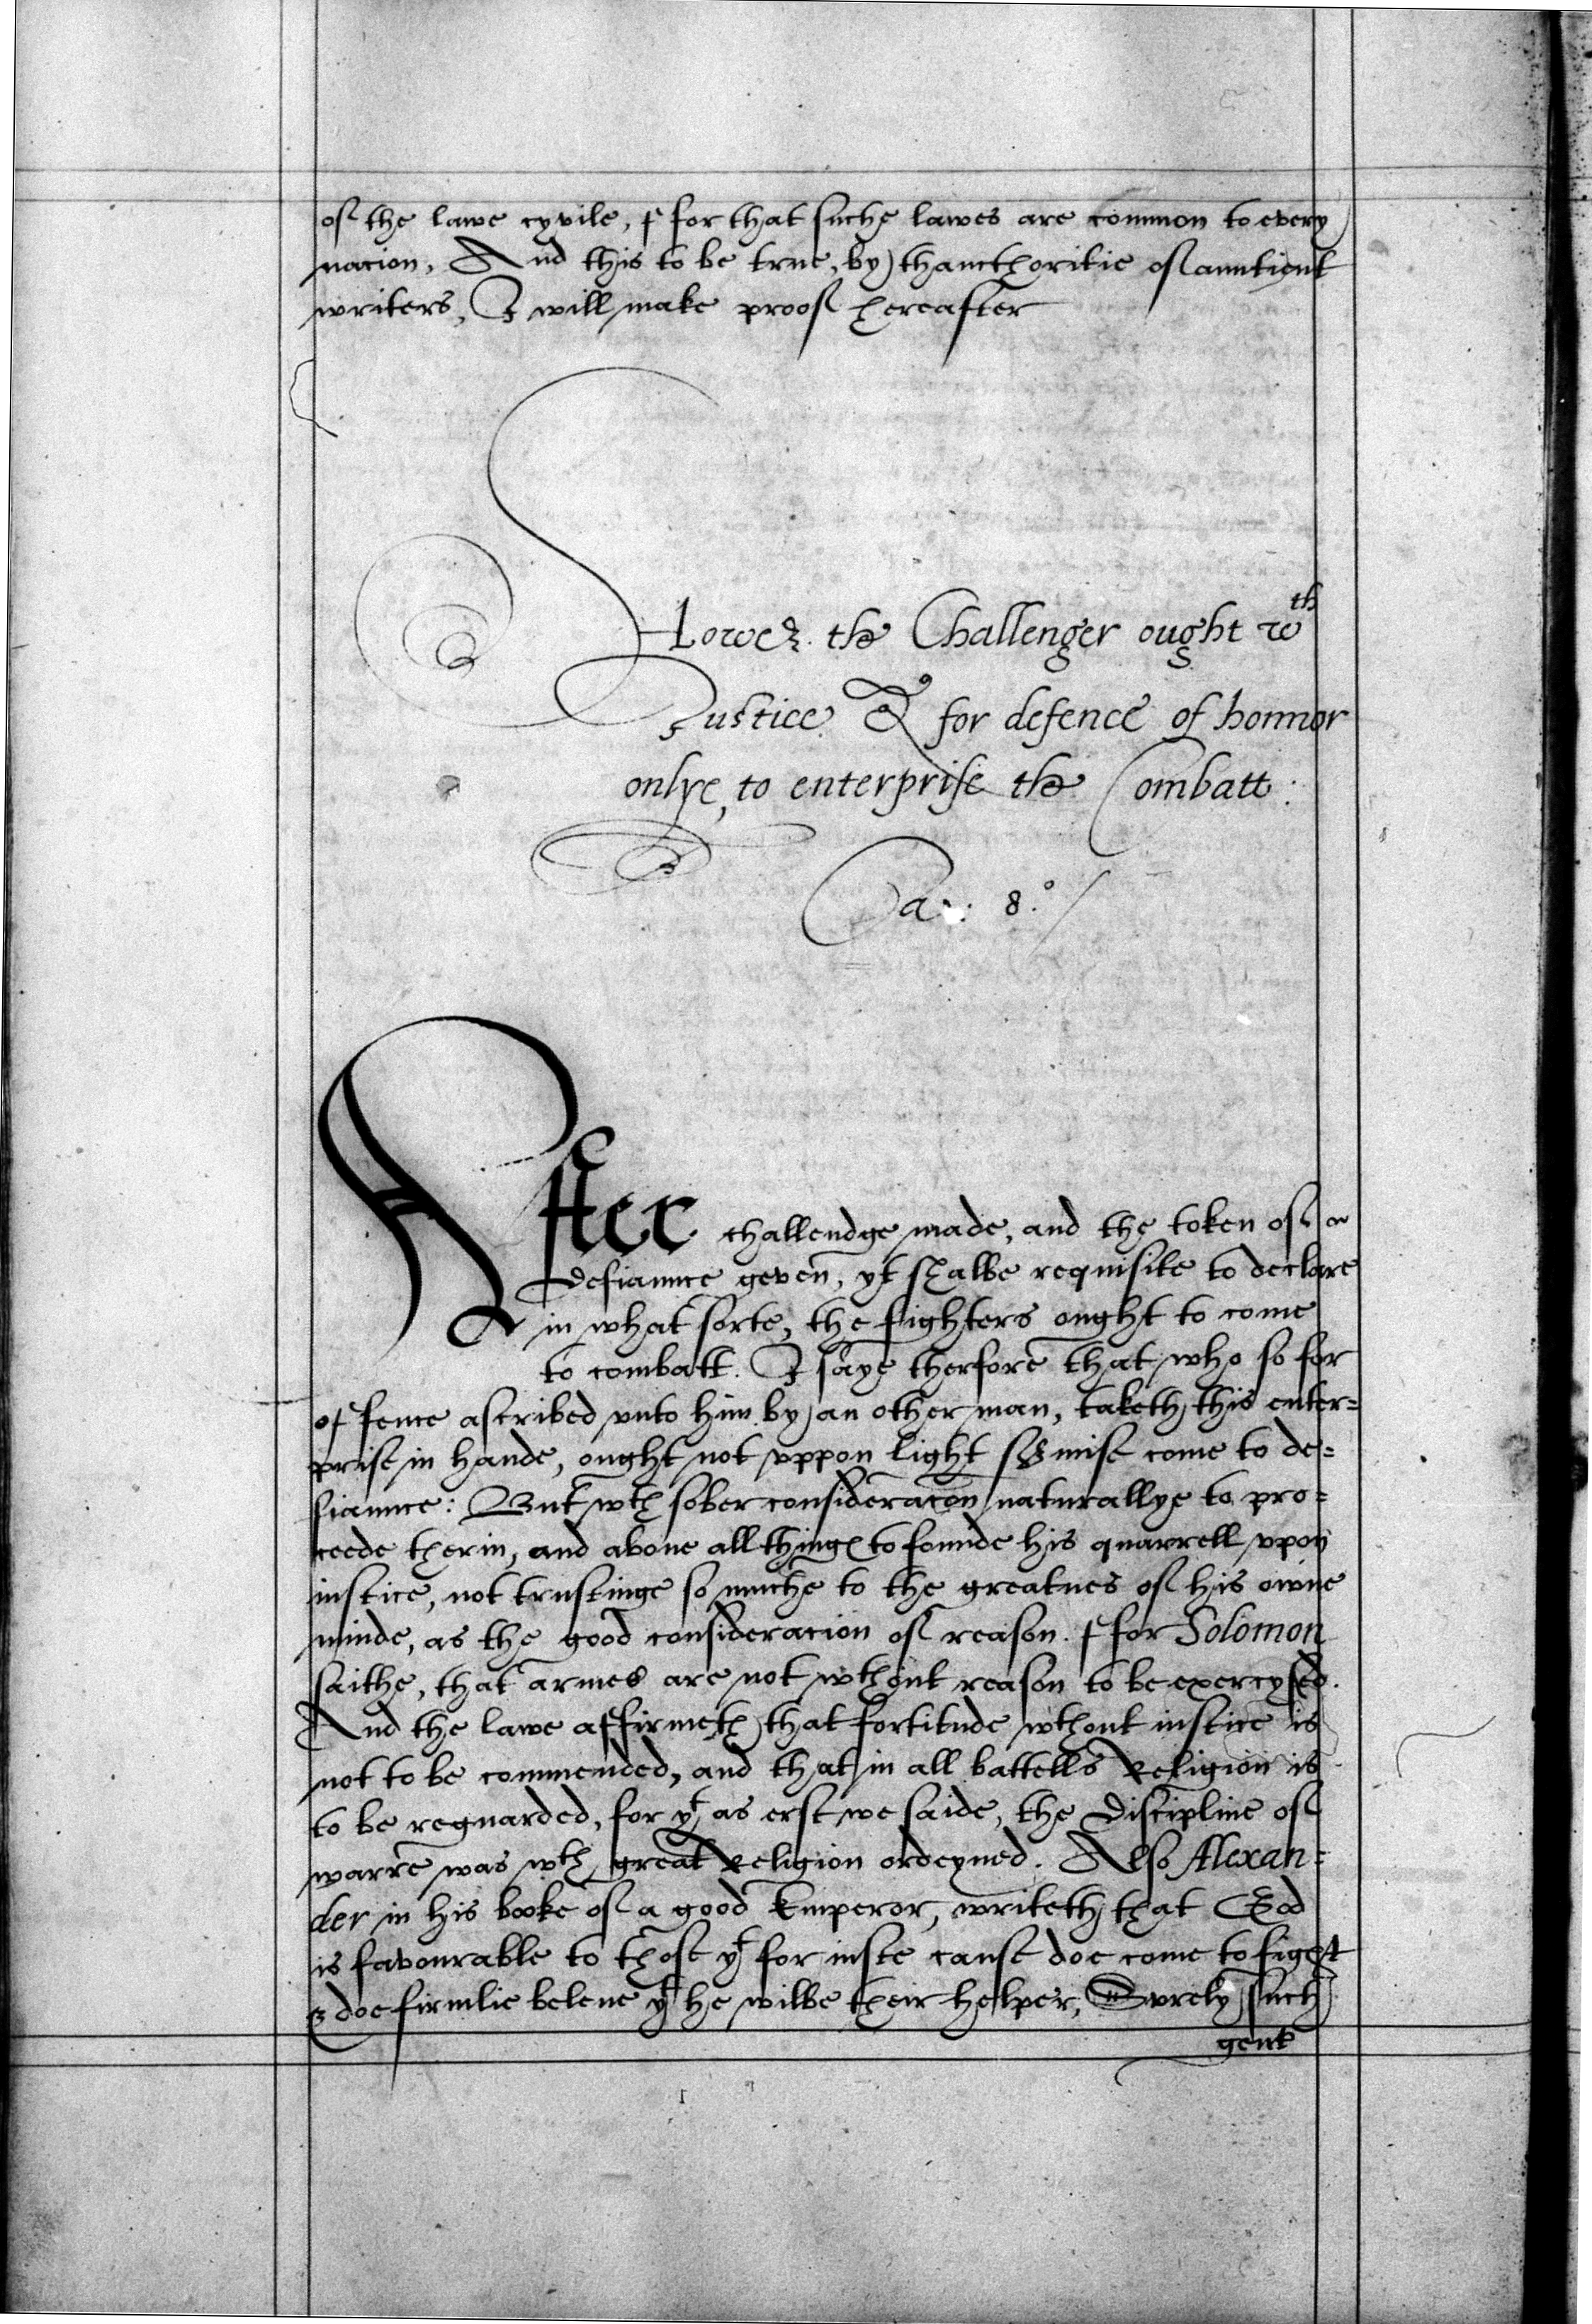 of the lawe cyvile, ffor that suche lawes are common to every
nacion, And this to be true, by thaucthoritie of auntient
writers, I will make proof hereafter
Howe the Challenger ought wth
Justice & for defence of honnor
onlye, to enterprise the Combatt:
Ca.: 8.º /
After challendge made, and the token of a
defiaunce geven, yt shalbe requisite to declare
in what sorte, the fighters ought to come
to combatt. I saye therfore that who so for
offence ascribed vnto him by an other man, taketh this enter=
prise in hande, ought not vppon light surmise come to de=
fiaunce: But wth sober consideracon naturallye to pro=
ceede therin, and aboue all thinges to founde his quarrell vpon
iustice, not trustinge so muche to the greatnes of his owne
minde, as the good consideracion of reason. ffor Solomon
saithe, that armes are not wthout reason to be exercysed.
And the lawe affirmeth that fortitude wthout iustice is
not to be commended, and that in all battells Religion is
to be reguarded, for yt as erst we saide, the discipline of
warre was wth great Religion ordeyned. Also Alexan=
der in his booke of a good Emperor, writeth that God
is favourable to those yt for iuste cause doe come to fight
& doe firmlie beleue yt he wilbe their helper, Surely such
gent